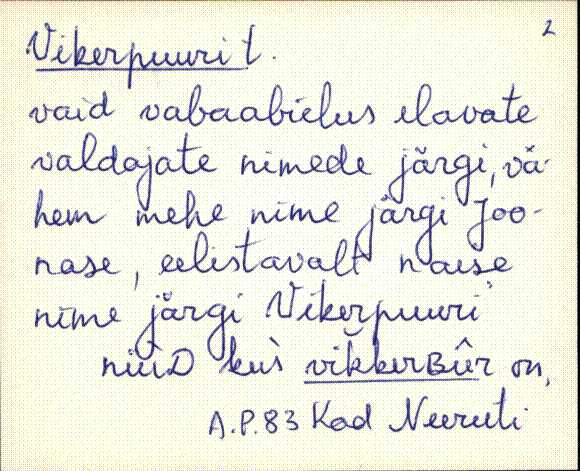 2
Vikerpuuri t.
vaid vabaabielus elavate
valdajate nimede järgi, vä-
hem mehe nime järgi Joo-
nase, eelistavalt naise
nime järgi Vikerpuuri
nüiD kus vikkerʙûr on,
A.P. 83 Kad Neeruti